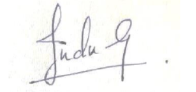 Indu G